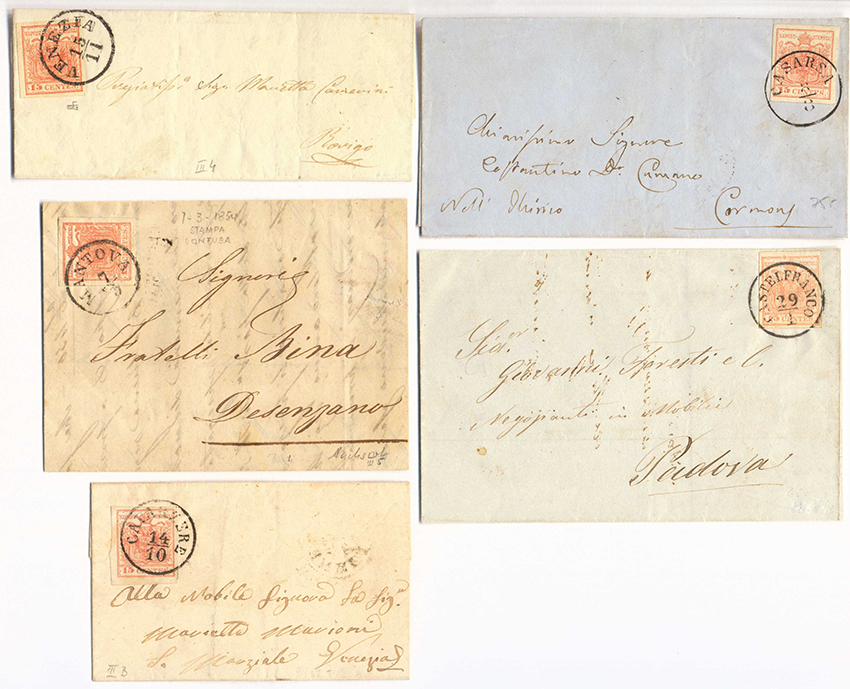 VENEZIA
15
11
15 CENTES
Sigr Marietta
Rovigo
III 4
CASARSA
CENTES
Chiarissimo Signore
Costantino Dr Cumano
Nell' Illirico Cormons
1-3-1854
STAMPA
CONFUSA
MANTOVA
Signori
Fratelli Bina
Desenzano
CASTELFRANCO
29
1
CENTES
Sigr
Giovanni Foresti e C.
Negozianti in Mobilie
Padova
CAVARZERE
14
10
15 CENTES
Alla Nobile Signora La Sigra
Marietta Marioni
S. Marziale Venezia
III 3